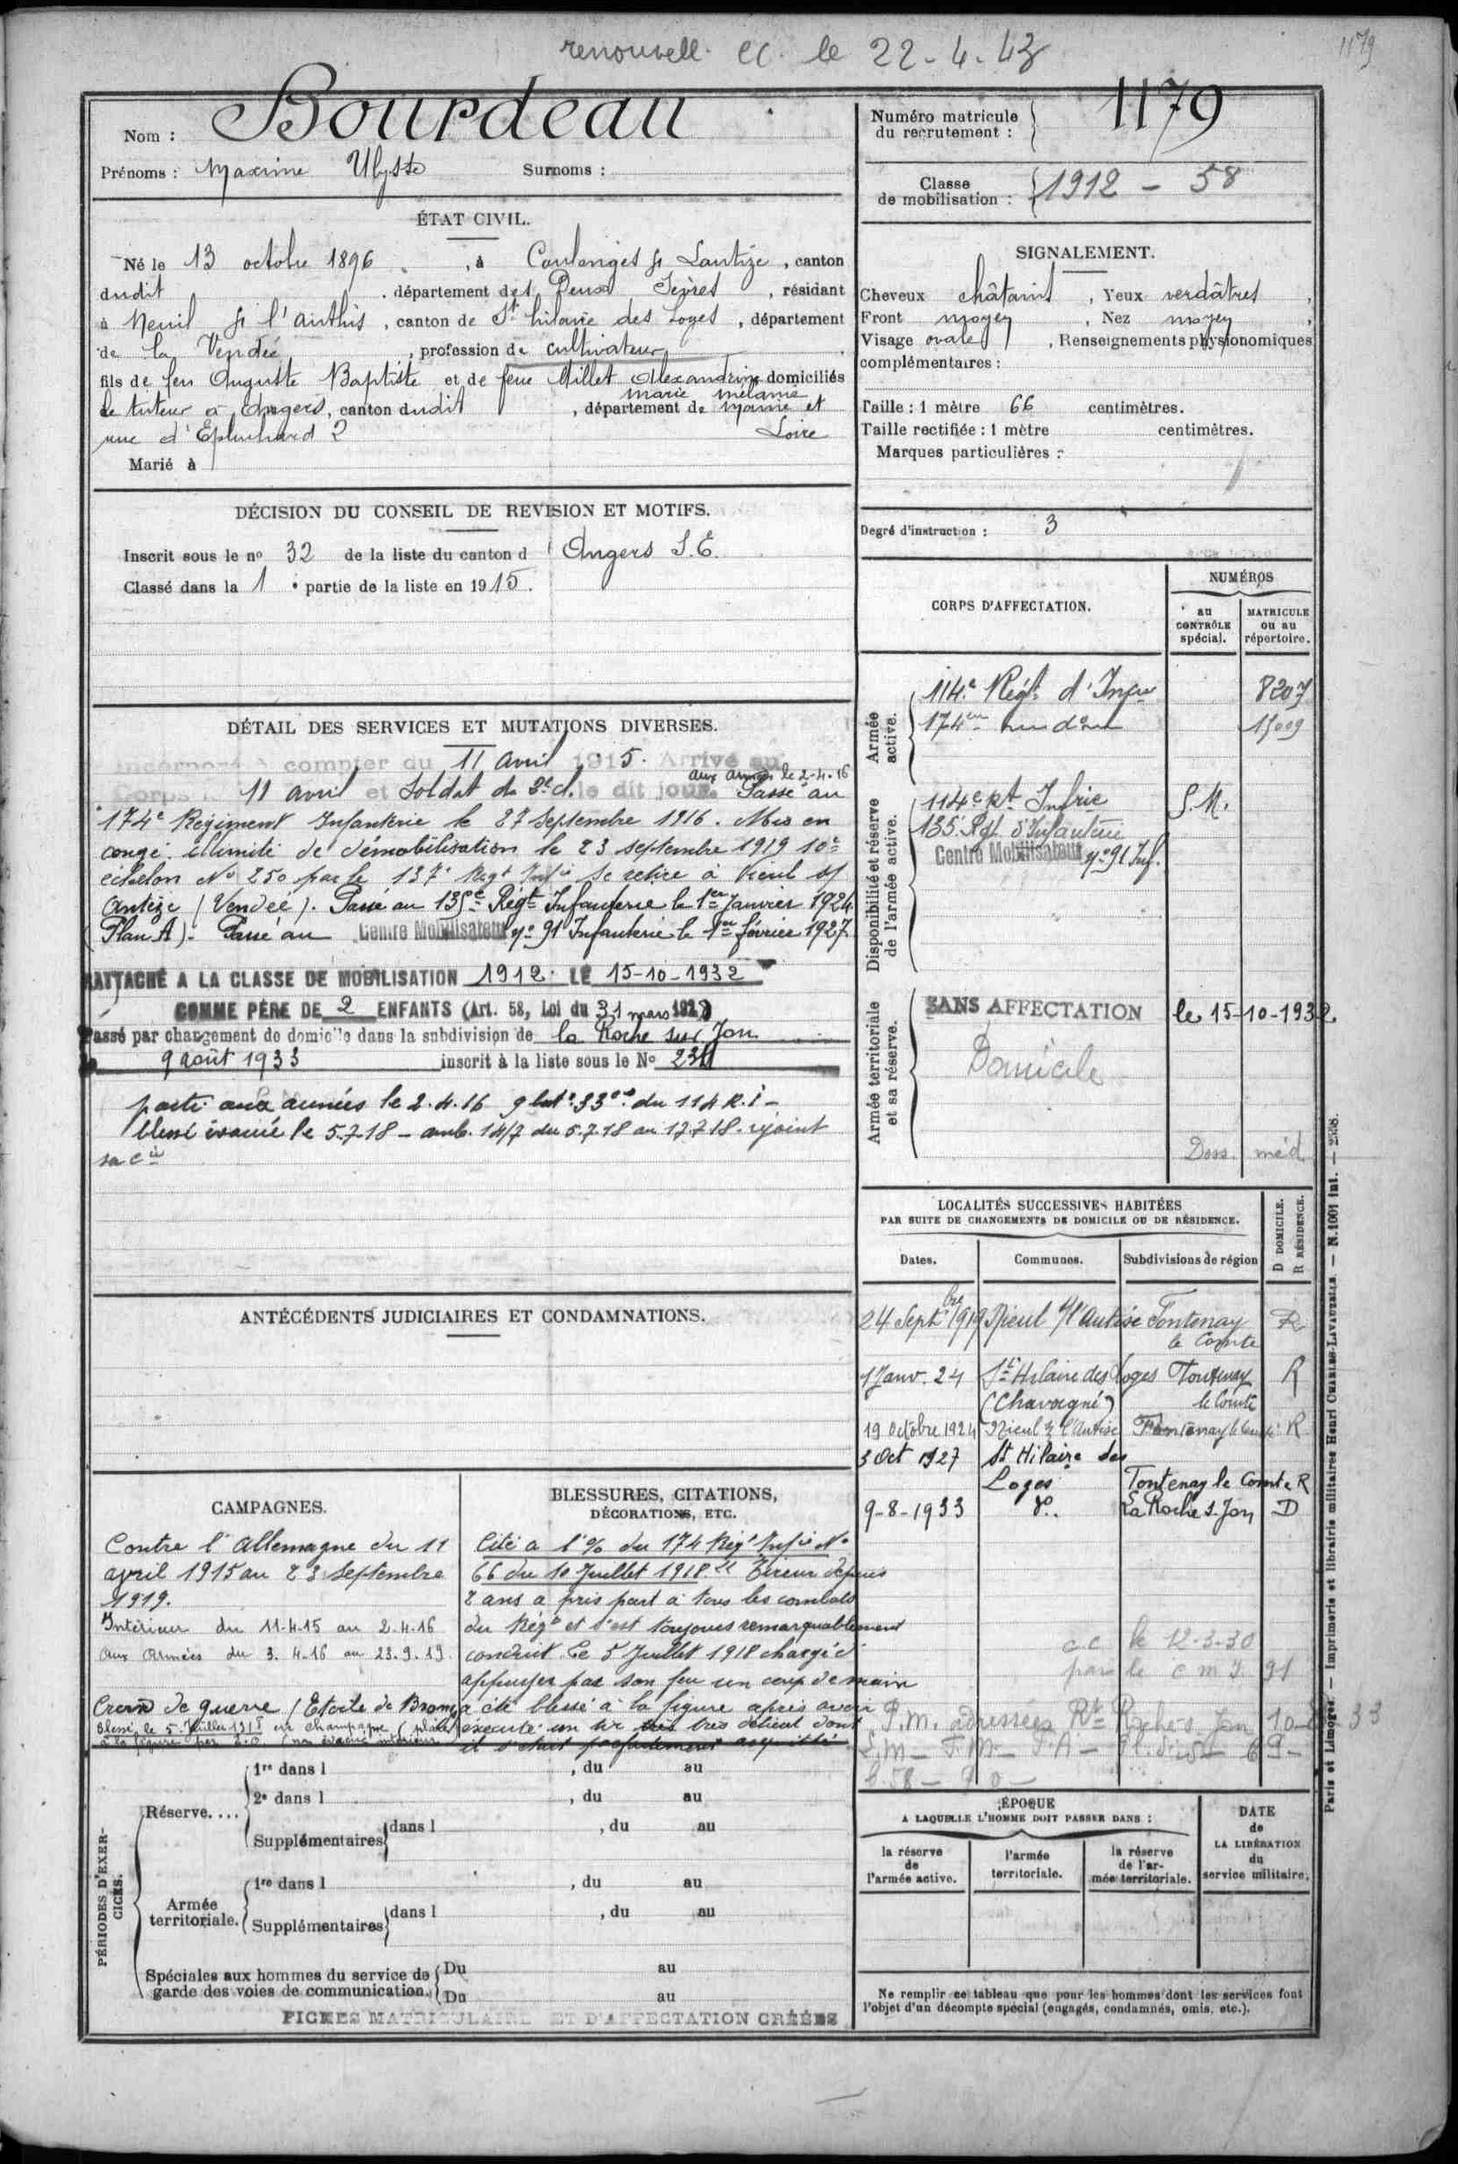 renouvell. cc. le 22-4-43
1179
Nom : Bourdeau
Prénoms : Maxime Ulysse Surnoms :
Numéro matricule
du recrutement : 1179
Classe
de mobilisation : 1912 - 58
ÉTAT CIVIL.
Né le 13 octobre 1896, à Coulonges s/ Lautize, canton
dudit, département des Deux Sèvres, résidant
à s/ l'authis, canton de St hilaire des Loges, département
de la Vendée, profession de cultivateur
fils de feu Auguste Baptiste et de feue Millet Alexandrine domiciliés
marie mélanie
le tuteur à Angers, canton dudit, département de Maine et
rue d'Epluchard 2 Loire
Marié à
SIGNALEMENT.
Cheveux châtains, Yeux verdâtres,
Front moyen, Nez moyen,
Visage ovale, Renseignements physionomiques
complémentaires :
Taille : 1 mètre 66 centimètres.
Taille rectifiée : 1 mètre centimètres.
Marques particulières :
Degré d'instruction : 3
DÉCISION DU CONSEIL DE REVISION ET MOTIFS.
Inscrit sous le no 32 de la liste du canton d'Angers S.E.
Classé dans la 1e partie de la liste en 1915.
CORPS D'AFFECTATION.
NUMÉROS
au
CONTRÔLE
spécial.
MATRICULE
ou au
répertoire.
Armée
active.
114e Régt d'Infie 8207
174em 15009
Disponibilité et réserve
de l'armée active.
114e Rt Infrie S.M.
135e Rgt d'Infanterie
Centre Mobilisateur no 91 Inf.
Armée territoriale
et sa réserve.
SANS AFFECTATION le 15-10-1932
Domicile
Doss. méd
DÉTAIL DES SERVICES ET MUTATIONS DIVERSES.
Incorporé à compter du 11 avril 1915. Arrivé au
aux armées le 2-4-16
Corps le 11 avril et Soldat de 2e cl. le dit jour. Passé au
174e Régiment Infanterie le 27 septembre 1916. Mis en
congé illimité de démobilisation le 23 septembre 1919 10e
échelon No 250 par le 137e Regt Infie Se retire à Nieul s/
Autize (Vendée). Passé au 135e Régt Infanterie le 1er Janvier 1924
(Plan A). Passé au Centre Mobilisateur no 91 Infanterie le 1er février 1927
RATTACHÉ A LA CLASSE DE MOBILISATION 1912 LE 15-10-1932
COMME PÈRE DE 2 ENFANTS (Art. 58, Loi du 31 mars 1928)
Passé par changement de domicile dans la subdivision de la Roche sur Yon
le 9 août 1933 inscrit à la liste sous le No
parti aux armées le 2.4.16 9 bat. 33e cie du 114 R.I -
blessé évacué le 5-7-18 - amb. 14/7 du 5.7.18 au 17.7.18. rejoint
sa cie
LOCALITÉS SUCCESSIVES HABITÉES
PAR SUITE DE CHANGEMENTS DE DOMICILE OU DE RÉSIDENCE.
D DOMICILE.
R RÉSIDENCE.
Dates. Communes. Subdivisions de région
24 Septbre 1919 Nieul s/ l'Autise Fontenay le Comte R
1 Janv. 24 St Hilaire des Loges Fontenay le Comte R
(Chavagné)
19 Octobre 1924 Nieul s/ l'Autise Fontenay le Comte R
3 Oct 1927 St Hilaire des
Loges Fontenay le Comte R
9-8-1933 do. La Roche s. Yon D
c.c. le 12-3-30
par le c m I 91
P.M. adressées Rt Roche s. Yon 10-8-33
ANTÉCÉDENTS JUDICIAIRES ET CONDAMNATIONS.
CAMPAGNES.
Contre l'Allemagne du 11
avril 1915 au 23 septembre
1919.
Intérieur du 11-4-15 au 2-4-16
Aux Armées du 3.4-16 au 23.9.19.
Croix de guerre (Etoile de Bronze
Blessé le 5 Juillet 1918 en champagne (plaie
à la figure par E.O (non évacué intérieur)
BLESSURES, CITATIONS,
DÉCORATIONS, ETC.
Cité à l'% du 174 Régt Infie No
66 du 10 Juillet 1918 "Tireur depuis
2 ans a pris part à tous les combats
du Régt et s'est toujours remarquablement
conduit. Le 5 Juillet 1918 chargé d'
appuyer par son feu un coup de main
a été blessé à la figure après avoir
exécuté un tir très délicat dont
il s'était parfaitement acquitté
PÉRIODES D'EXERCICES.
Réserve....
1re dans l , du au
2e dans l , du au
Supplémentaires dans l , du au
Armée
territoriale.
1re dans l , du au
Supplémentaires dans l , du au
Spéciales aux hommes du service de
garde des voies de communication.
Du au
Du au
FICHES MATRICULAIRE ET D'AFFECTATION CRÉÉES
ÉPOQUE
A LAQUELLE L'HOMME DOIT PASSER DANS :
la réserve
de
l'armée active.
l'armée
territoriale.
la réserve
de l'ar-
mée territoriale.
DATE
de
LA LIBÉRATION
du
service militaire.
Ne remplir ce tableau que pour les hommes dont les services font
l'objet d'un décompte spécial (engagés, condamnés, omis, etc.).
Paris et Limoges. — Imprimerie et librairie militaires Henri CHARLES-LAVAUZELLE. — N. 1001 int. — 2558.